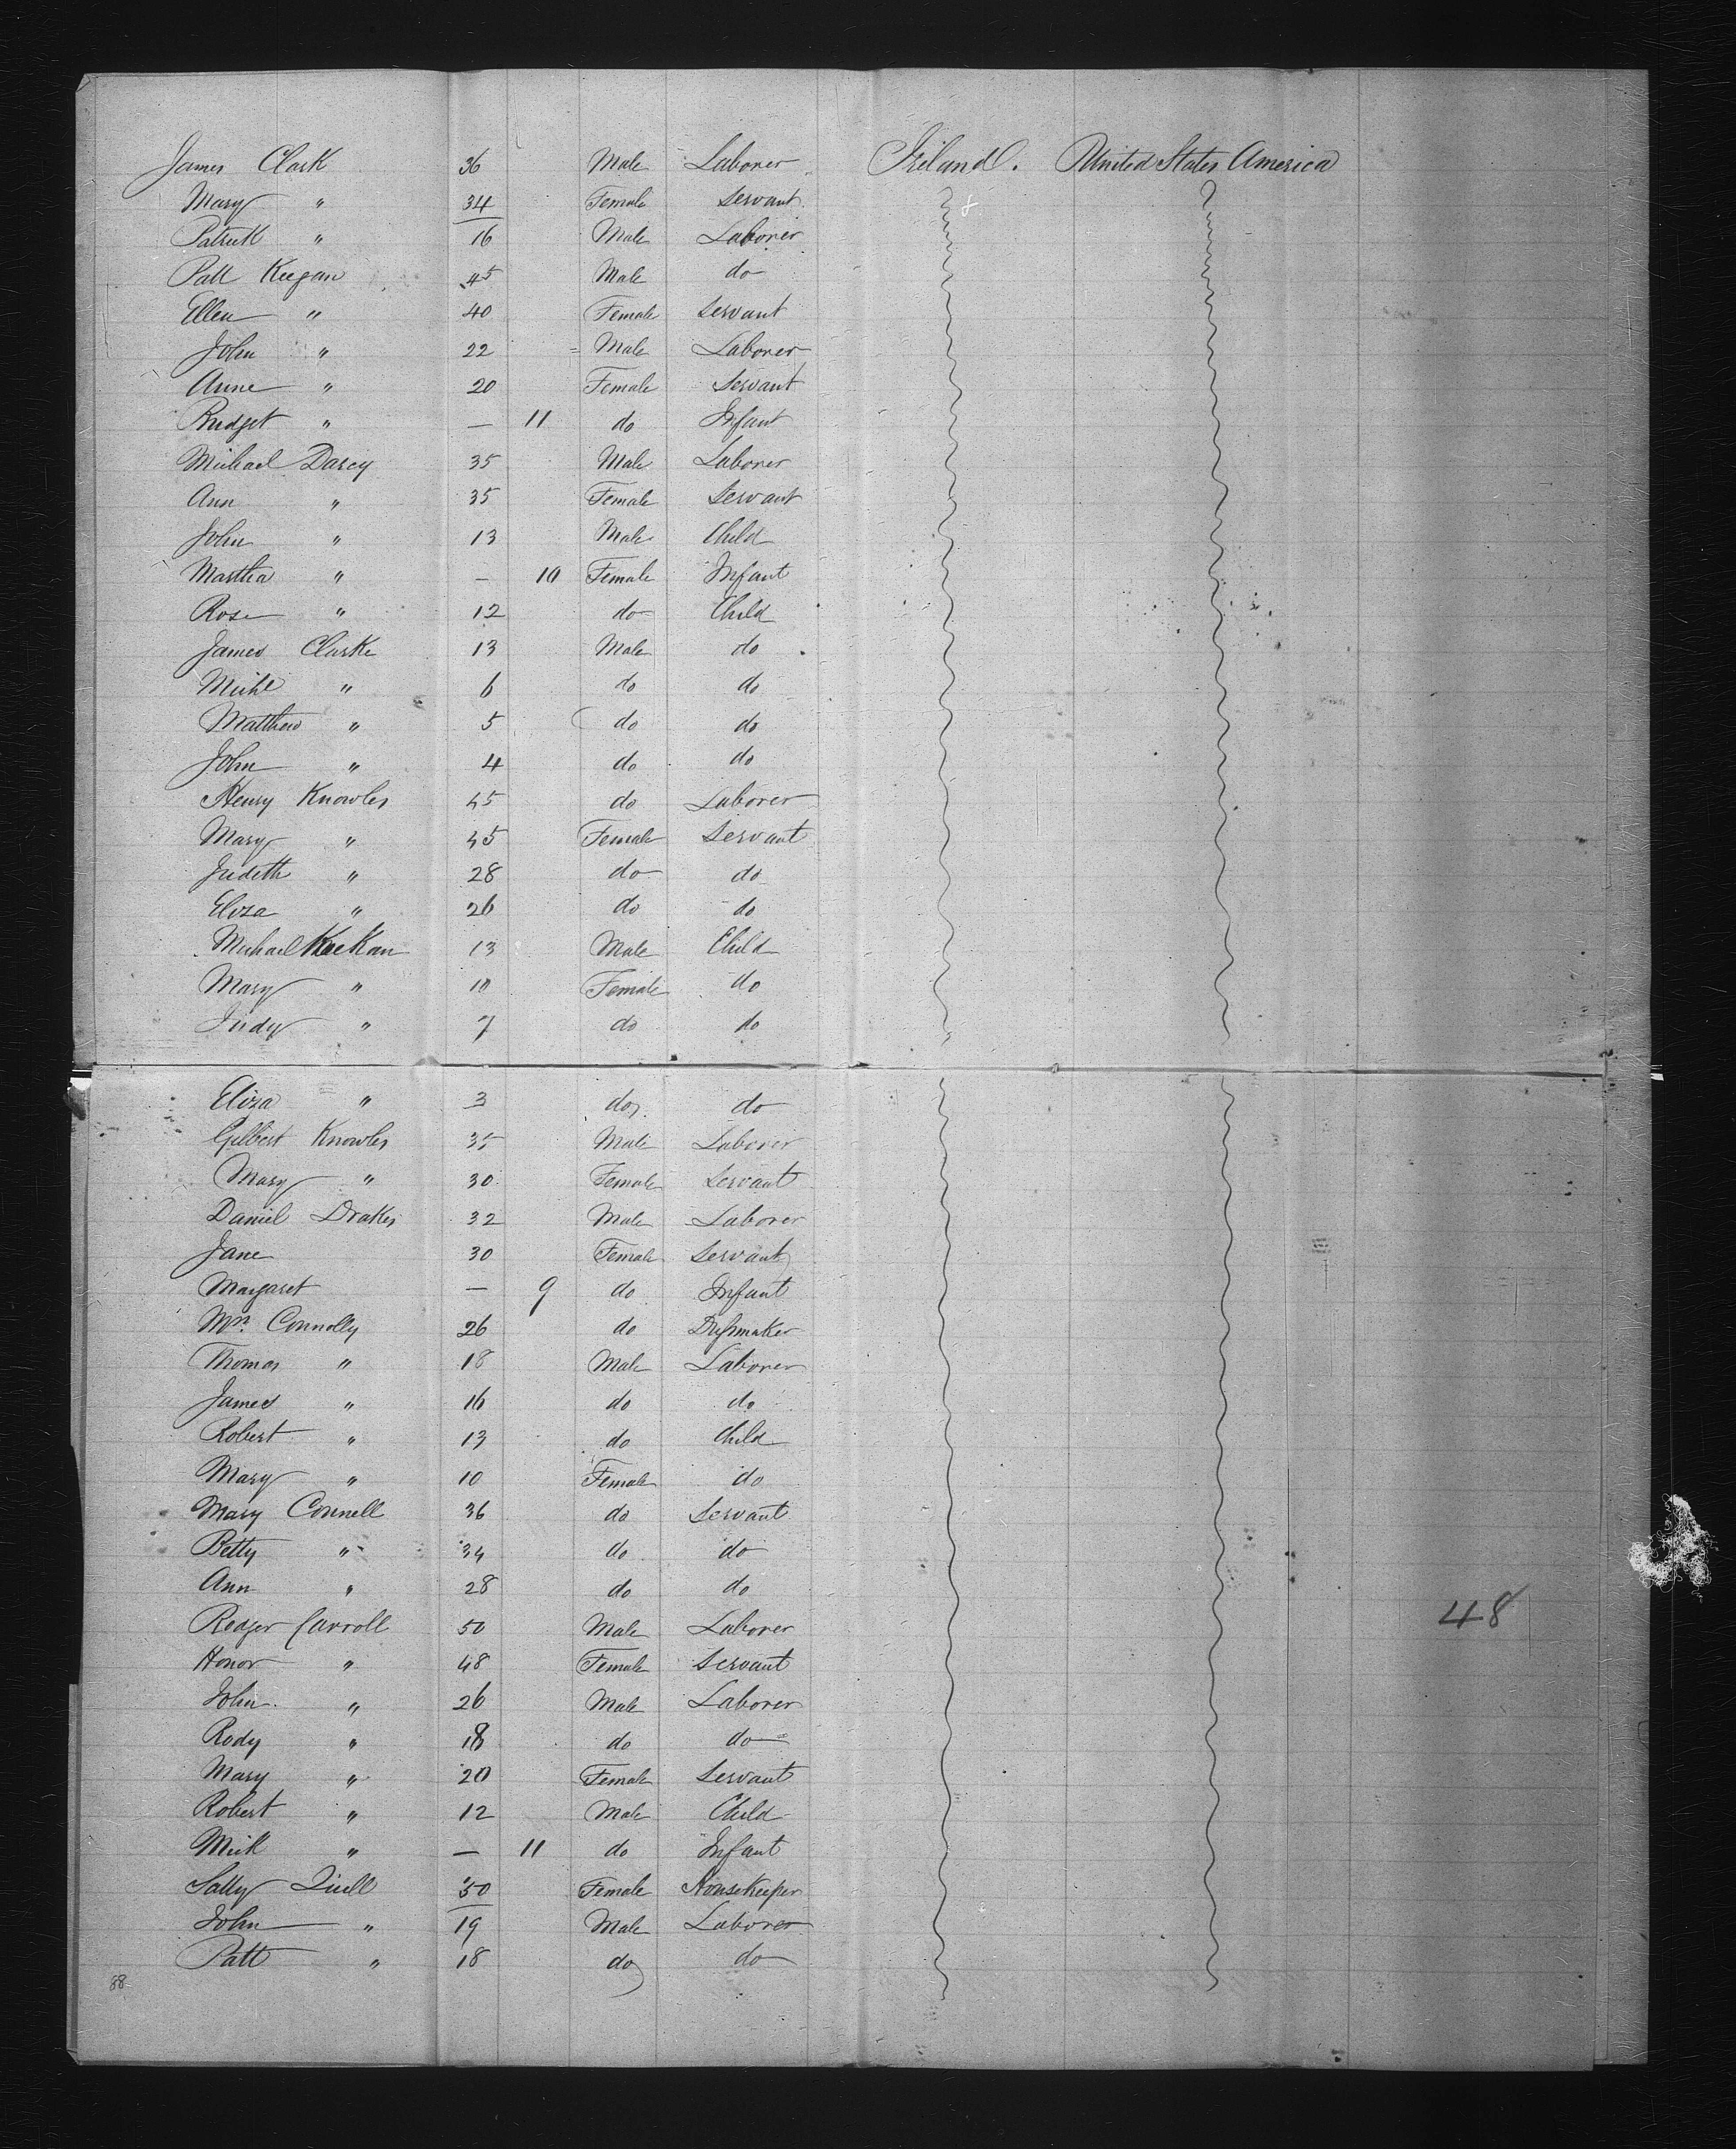 James Clark 36 Male Laborer Ireland. United States America
Mary " 34 Female Servant
Patrick " 16 Male Laborer
Patt Keegan 45 Male do
Ellen " 40 Female Servant
John " 22 Male Laborer
Anne " 20 Female Servant
Bridget " — 11 do Infant
Michael Darcy 35 Male Laborer
Ann " 35 Female Servant
John " 13 Male Child
Martha " — 10 Female Infant
Rose " 12 do Child
James Clarke 13 Male do
Michl " 6 do do
Matthew " 5 do do
John " 4 do do
Henry Knowles 45 do Laborer
Mary " 45 Female Servant
Judeth " 28 do do
Eliza " 26 do do
Michael 13 Male Child
Mary " 10 Female do
Judy " 7 do do
Eliza " 3 do do
Gilbert Knowles 35 Male Laborer
Mary " 30 Female Servant
Daniel Drakes 32 Male Laborer
Jane 30 Female Servant
Margaret — 9 do Infant
Connolly 26 do Dressmaker
Thomas " 18 Male Laborer
James " 16 do do
Robert " 13 do Child
Mary " 10 Female do
Mary Connell 36 do Servant
Betty " 34 do do
Ann " 28 do do
Rodger Carroll 50 Male Laborer
48
Honor " 48 Female Servant
John " 26 Male Laborer
Rody " 18 do do
Mary " 20 Female Servant
Robert " 12 Male Child
Mick " — 11 do Infant
Sally Quill 50 Female Housekeeper
John " 19 Male Laborer
Patt " 18 do do
88